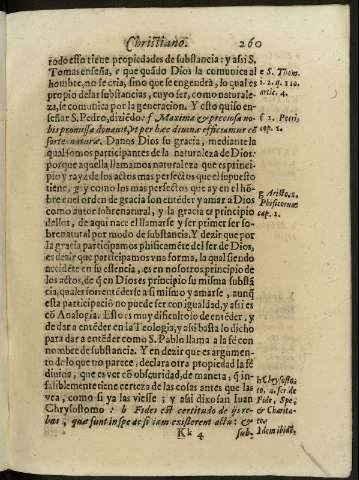 Christiano. 260
todo esto tiene propiedades de substancia: y assi S.
Tomas enseña, e que quãdo Dios la comunica al
hombre, no se cria, sino que se engendra, lo qual es
propio de las substancias, cuyo ser, como naturale-
za, se comunica por la generacion. Y esto quiso en-
señar S. Pedro, diziẽdo: f Maxima & preciosa no-
bis promissa donauit, vt per hæc diuinæ efficiamur cõ
sortes naturæ. Danos Dios su gracia, mediante la
qual somos participantes de la naturaleza de Dios:
porque aquella llamamos naturaleza que es princi-
pio y rayz de los actos mas perfectos que el supuesto
tiene, g y como los mas perfectos que ay en el hõ-
bre en el orden de gracia son entẽder y amar a Dios
como autor sobrenatural, y la gracia es principio
dellos, de aqui nace el llamarse y ser primer ser so-
brenatural por modo de substancia. Y dezir que por
la gracia participamos phisicamẽte del ser de Dios,
es dezir que participamos vna forma, la qual siendo
accidẽte en su essencia, es en nosotros principio de
los actos, de q̃ en Dios es principio su misma substã
cia, quales son entẽderse a si mismo y amarse, aunq̃
esta participaciõ no puede ser con igualdad, y assi es
cõ Analogia. Esto es muy dificultoso de entẽder, y
de dar a entẽder en la Teologia, y assi basta lo dicho
para dar a entẽder como S. Pablo llama a la fè con
nombre de substancia. Y en dezir que es argumen-
to de lo que no parece, declara otra propiedad la fè
diuina, que es ver cõ obscuridad, de manera, q̃ in-
faliblemente tiene certeza de las cosas antes que las
vea, como si ya las viesse; y assi dixo san Iuan
Chrysostomo: h Fides est certitudo de ijs re-
bus, quæ sunt in spe de si iam existerent actu: &
Kk 4 sub-
e S. Thom.
1. 2. q. 110.
artic. 4.
f 2. Petri,
cap. 2.
g Aristo. 2.
Phisicorum
cap. 2.
h Chrysosto-
mo, 
Fide, Spe,
& Charita-
te.
Idem ibidẽ.